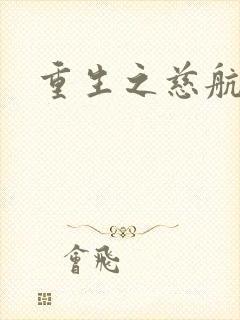 重生之慈航
會飛